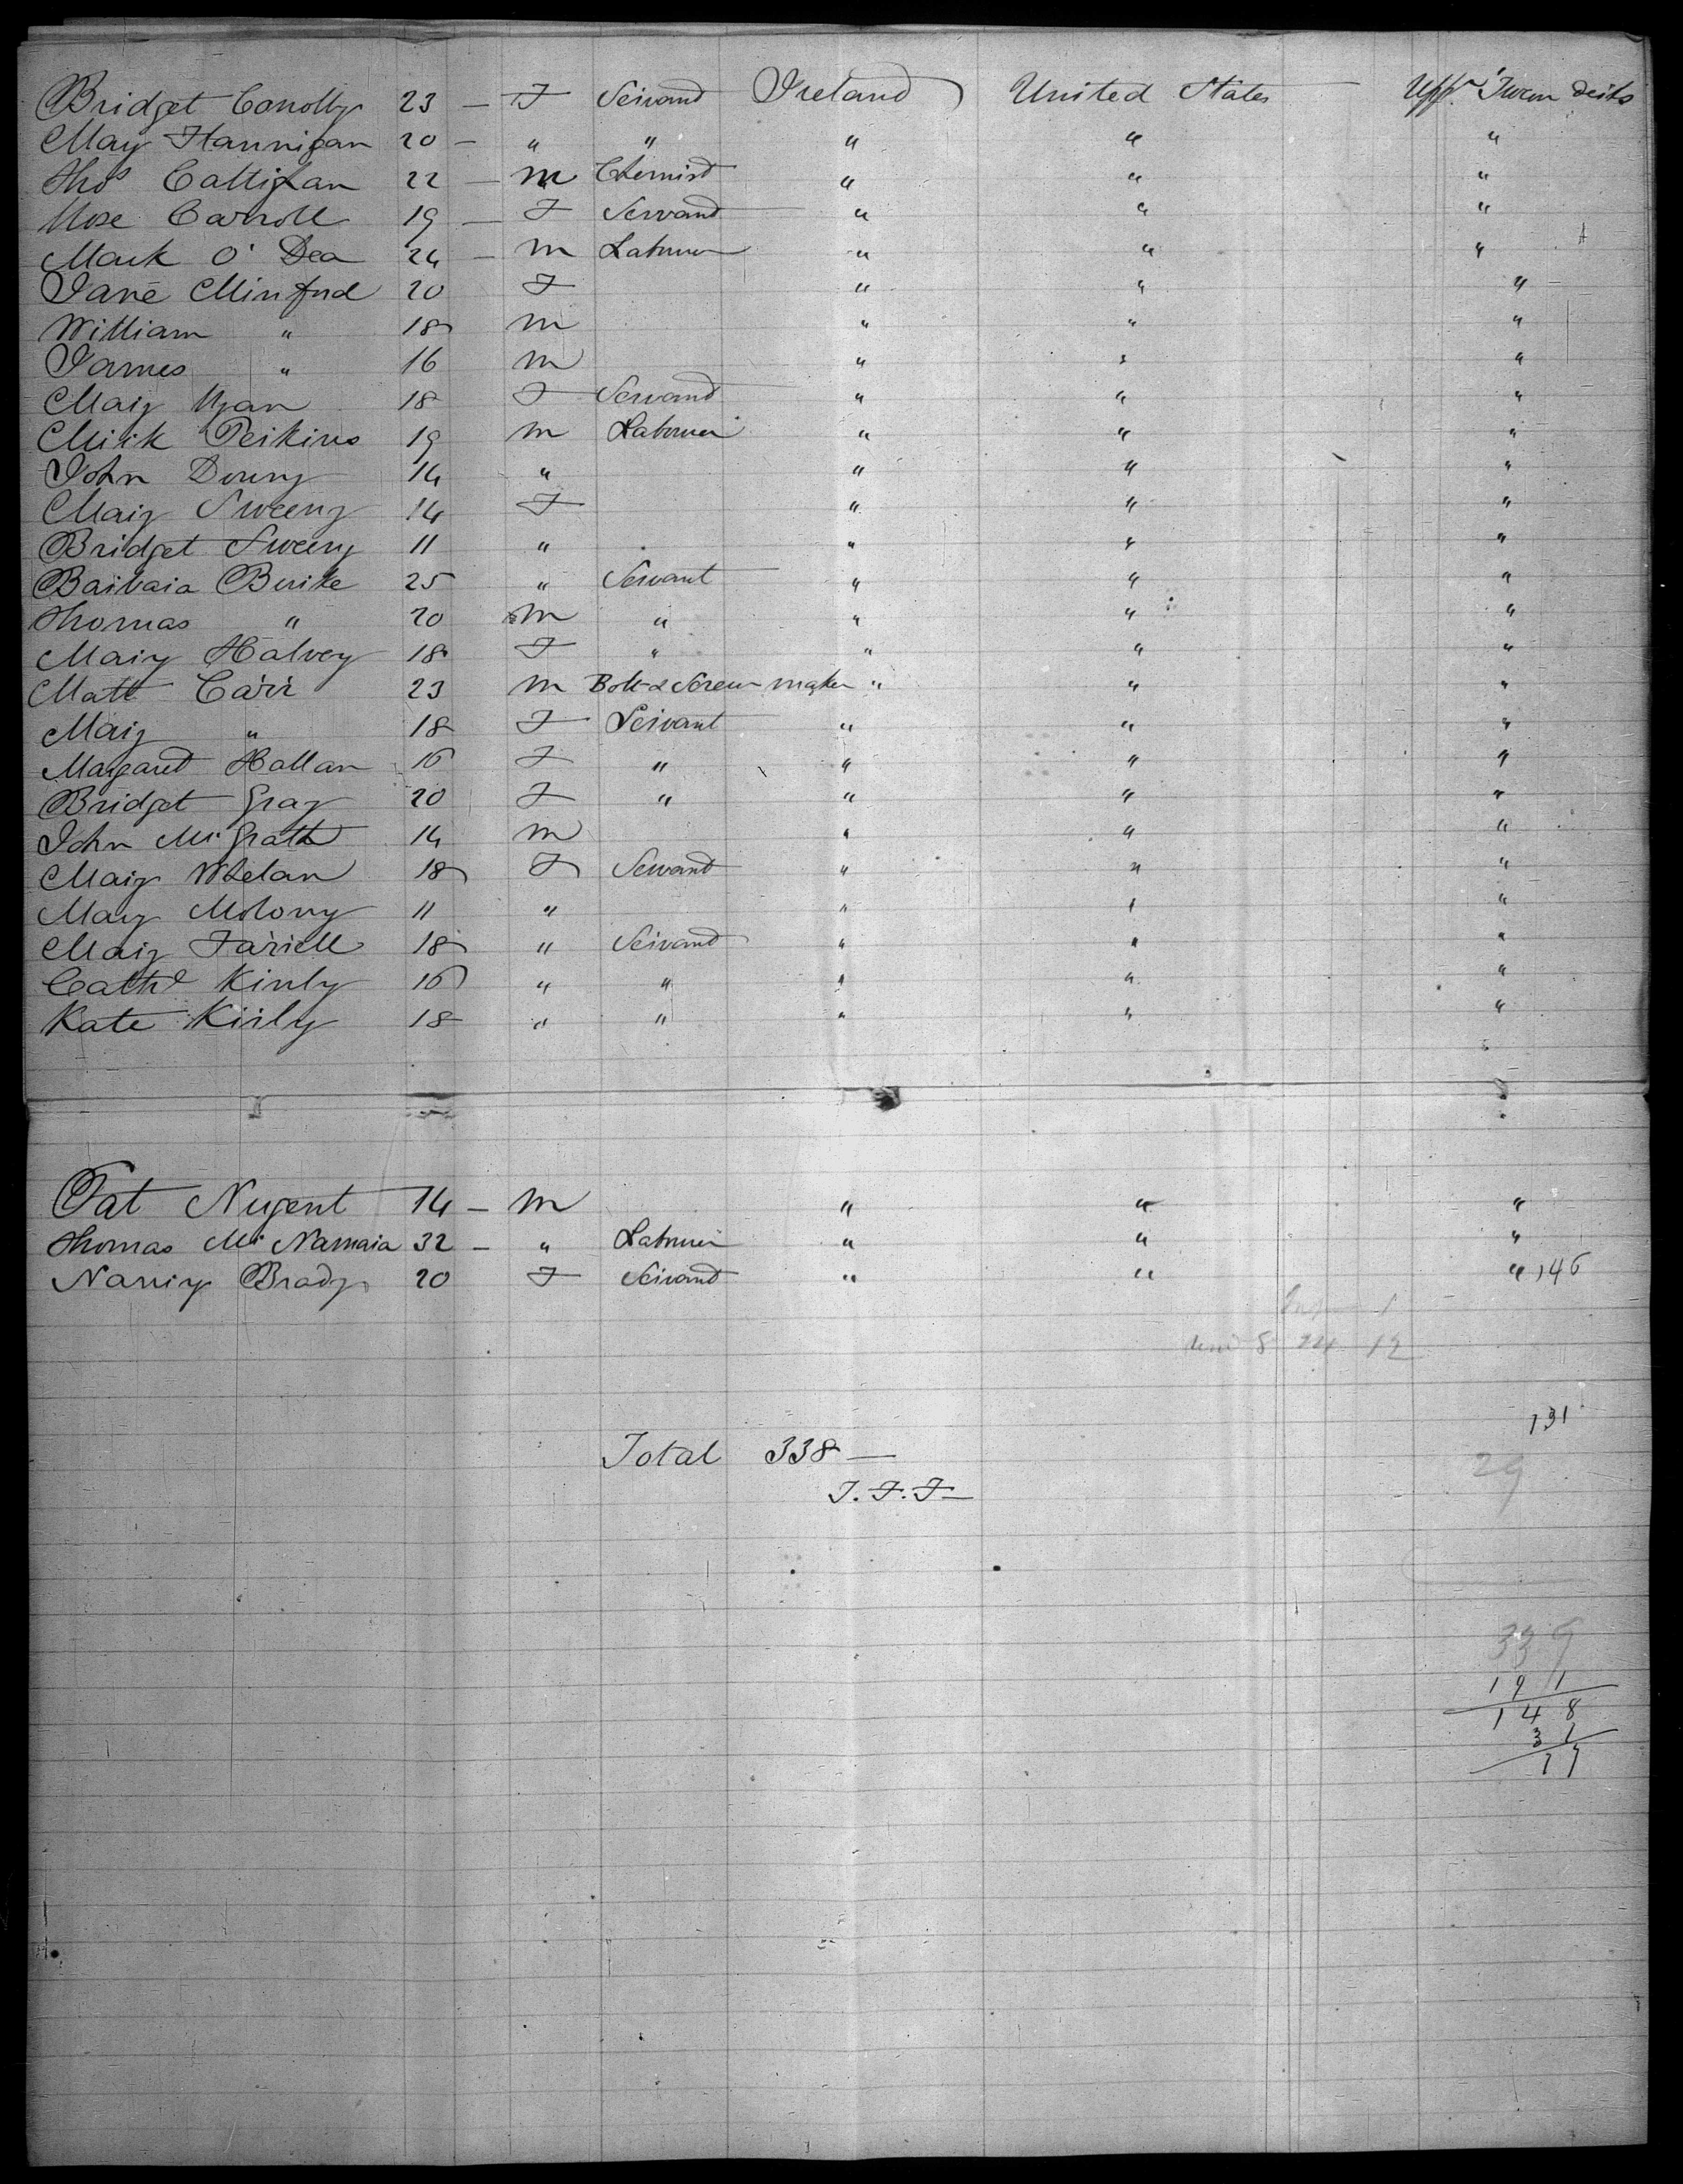 Bridget Conolly 23 — F Servant Ireland United States Upp. Tween decks
Mary Hannigan 20 — " " " " "
Thos Caltigan 22 — M Chemist " " "
Rose Carroll 19 — F Servant " " "
Mark O'Dea 24 — M Labourer " " "
Jane Minford 20 F " " "
William " 18 M " " "
James " 16 M " " "
Mary Ryan 18 F Servant " " "
Mick Perkins 19 M Labourer " " "
John 14 " " " "
Mary Sweeny 14 F " " "
Bridget Sweeny 11 " " " "
Barbara Burke 25 " Servant " " "
Thomas " 20 M " " " "
Mary Halvey 18 F " " " "
Matt Carr 23 M Bolt & Screw maker " " "
Mary " 18 F Servant " " "
Margaret Hallan 16 F " " " "
Bridget Gray 20 F " " " "
John McGrath 14 M " " "
Mary Whelan 18 F Servant " " "
Mary Molony 11 " " " "
Mary Farrell 18 " Servant " " "
Cathe Kirby 16 " " " " "
Kate Kirby 18 " " " " "
Pat Nugent 14 — M " " "
Thomas McNamara 32 — " Labourer " " "
Nanny Brady 20 F Servant " " " 146
12
131
Total 338 —
29
339
191
148
31